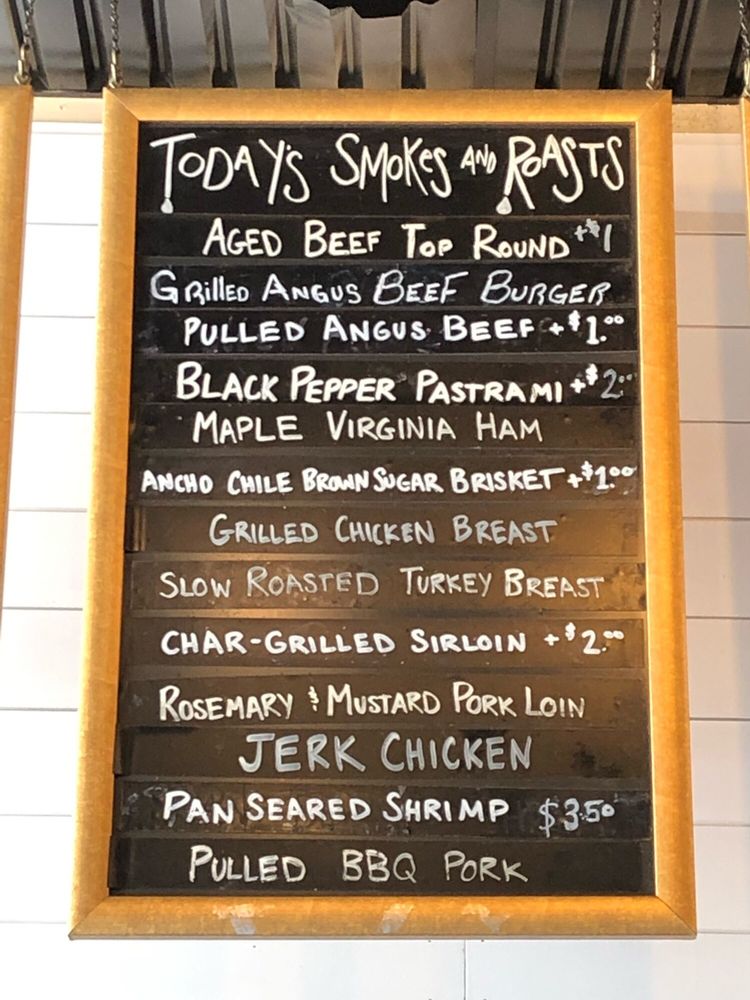 TODAY'S SMOKES AND ROASTS
AGED BEEF TOP ROUND +$1
GRillED ANGUS BEEF BURGER
PULLED ANGUS BEEF +$1.00
BLACK PEPPER PASTRAMI +$2.00
MAPLE VIRGINIA HAM
ANCHO CHILE BROWN SUGAR BRISKET +$1.00
GRILLED CHICKEN BREAST
SLOW ROASTED TURKEY BREAST
CHAR-GRILLED SIRLOIN +$2.00
ROSEMARY & MUSTARD PORK LOIN
JERK CHICKEN
PAN SEARED SHRIMP $3.50
PULLED BBQ PORK